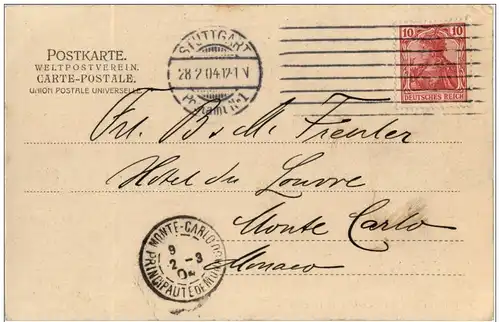 POSTKARTE.
WELTPOSTVEREIN.
CARTE-POSTALE.
UNION POSTALE UNIVERSELLE.
STUTTGART
28.2.04.12-1 V
Nr.1
10 10
DEUTSCHES REICH
Frl. B & M.
Hôtel du Louvre
Monte Carlo
Monaco
MONTE-CARLO
9
2 - 3
04
PRINCIPAUTÉ DE MONACO